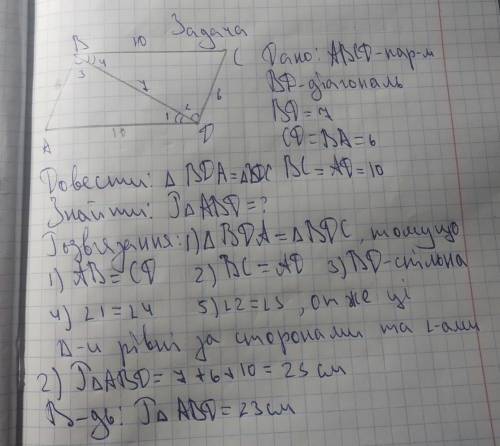 Задача
B 10 C
3 4
7
2
6
1
A 10 D
Дано: ABCD-пар-м
BD-діагональ
BD=7
CD=BA=6
BC=AD=10
Довести: △ BDA=△BDC
Знайти: P△ABD=?
Розв'язання: 1) △BDA=△BDC, тому що
1) AB=CD 2) BC=AD 3) BD-спільна
4) ∠1=∠4 5) ∠2=∠3, отже ці
△-и рівні за сторонами та ∠-ами
2) P△ABD=7+6+10=23 см
В-дь: P△ABD=23 см